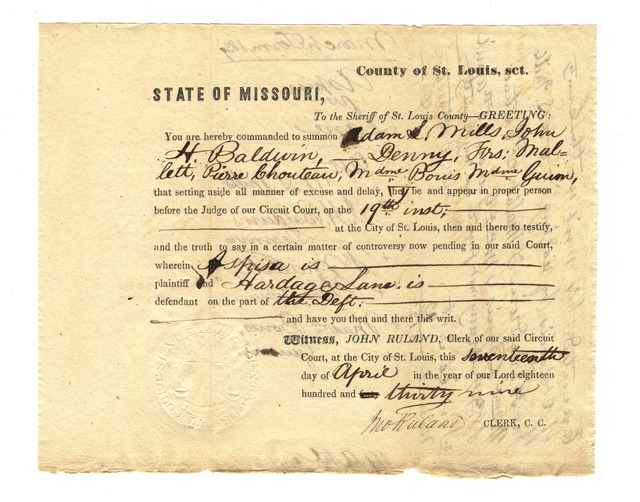 County of St. Louis, sct.
STATE OF MISSOURI,
To the Sheriff of St. Louis County—GREETING:
You are hereby commanded to summon Adam L. Mills, John
H. Baldwin, — Denny, Frs: Mal-
lett, Pierre Chouteau, Mdme Bouis Mdme Guion,
that setting aside all manner of excuse and delay, they be and appear in proper person
before the Judge of our Circuit Court, on the 19th inst;
at the City of St. Louis, then and there to testify,
and the truth to say in a certain matter of controversy now pending in our said Court,
wherein Aspisa is
plaintiff and Hardage Lane is
defendant on the part of the Deft.
and have you then and there this writ.
Witness, JOHN RULAND, Clerk of our said Circuit
Court, at the City of St. Louis, this seventeenth
day of April in the year of our Lord eighteen
hundred and forty thirty nine
Jno Ruland CLERK, C. C.